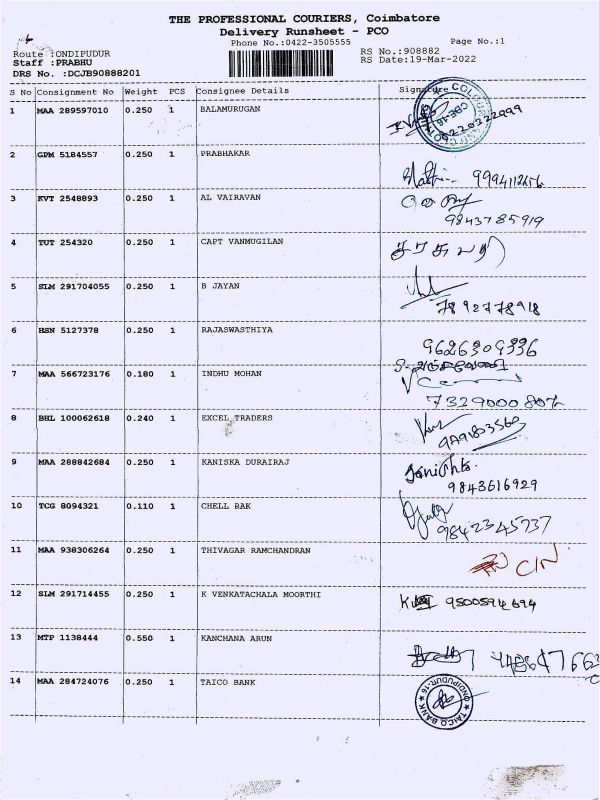 THE PROFESSIONAL COURIERS, Coimbatore
Delivery Runsheet - PCO
Phone No.:0422-3505555 Page No.:1
Route :ONDIPUDUR RS No.:908882
Staff :PRABHU RS Date:19-Mar-2022
DRS No. :DCJB90888201
S No Consignment No Weight PCS Consignee Details Signature
1 MAA 289597010 0.250 1 BALAMURUGAN
2 GPM 5184557 0.250 1 PRABHAKAR
3 KVT 2548893 0.250 1 AL VAIRAVAN
9843785919
4 TUT 254320 0.250 1 CAPT VANMUGILAN
5 SLM 291704055 0.250 1 B JAYAN
7892778918
6 HSN 5127378 0.250 1 RAJASWASTHIYA
9626309336
7 MAA 566723176 0.180 1 INDHU MOHAN
8 BHL 100062618 0.240 1 EXCEL TRADERS
9 MAA 288842684 0.250 1 KANISKA DURAIRAJ
9843616929
10 TCG 8094321 0.110 1 CHELL RAK
9842345737
11 MAA 938306264 0.250 1 THIVAGAR RAMCHANDRAN
12 SLM 291714455 0.250 1 K VENKATACHALA MOORTHI
9500594694
13 MTP 1138444 0.550 1 KANCHANA ARUN
14 MAA 284724076 0.250 1 TAICO BANK
ONDIPUDUR-16
TAICO BANK